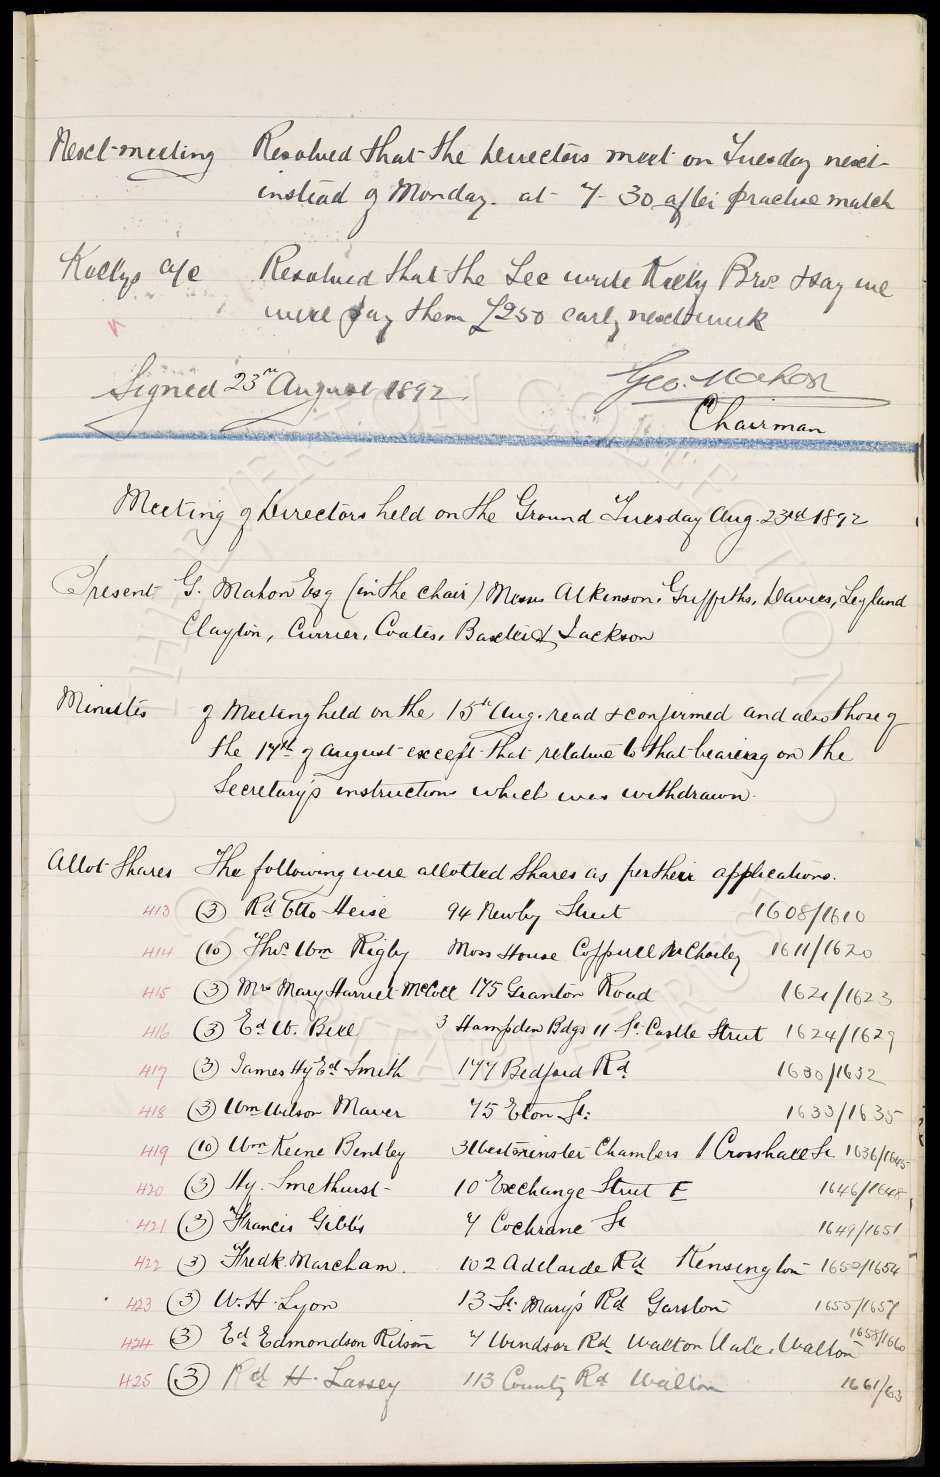 Next meeting Resolved that the Directors meet on Tuesday next
instead of Monday. at 7-30 after practise match
Kellys a/c Resolved that the Sec write Kelly Bros & say we
were pay them £250 early next week
Signed 23rd August 1892 Geo. Mahon
Chairman
Meeting of Directors held on the Ground Tuesday Aug. 23rd 1892
Present G. Mahon Esq (in the chair) Messrs Atkinson, Griffiths, Davies, Leyland
Clayton, Currier, Coates, Baxter & Jackson
Minutes of Meeting held on the 15th Aug. read & confirmed and also those of
the 17th of August except that relative to that bearing on the
Secretary's instructions which was withdrawn.
Allot Shares The following were allotted shares as per their applications.
413 (3) Rd Otto Heise 94 Newby Street 1608/1610
414 (10) Thos Wm Rigby Moss House Coppull Nr Chorley 1611/1620
415 (3) Mrs Mary Harriet McColl 175 Granton Road 1621/1623
416 (3) Ed W. Bell 3 Hampden Bdgs 11 St. Castle Street 1624/1629
417 (3) James Hy Ed Smith 177 Bedford Rd 1630/1632
418 (3) Wm Wilson Maver 75 Eton St: 1633/1635
419 (10) Wm Keene Bentley 3 Westminster Chambers 1 Crosshall St 1636/1645
420 (3) Hy. Smethurst 10 Exchange Street E 1646/1648
421 (3) Francis Gibbs 7 Cochrane St 1649/1651
422 (3) Fredk. Marcham. 102 Adelaide Rd Kensington 1652/1654
423 (3) W. H. Lyon 13 St. Mary's Rd Garston 1655/1657
424 (3) Ed Edmondson Ritson 7 Windsor Rd Walton Vale, Walton 1658/1660
425 (3) Rd H. Lassey 113 County Rd Walton 1661/63
THE EVERTON COLLECTION